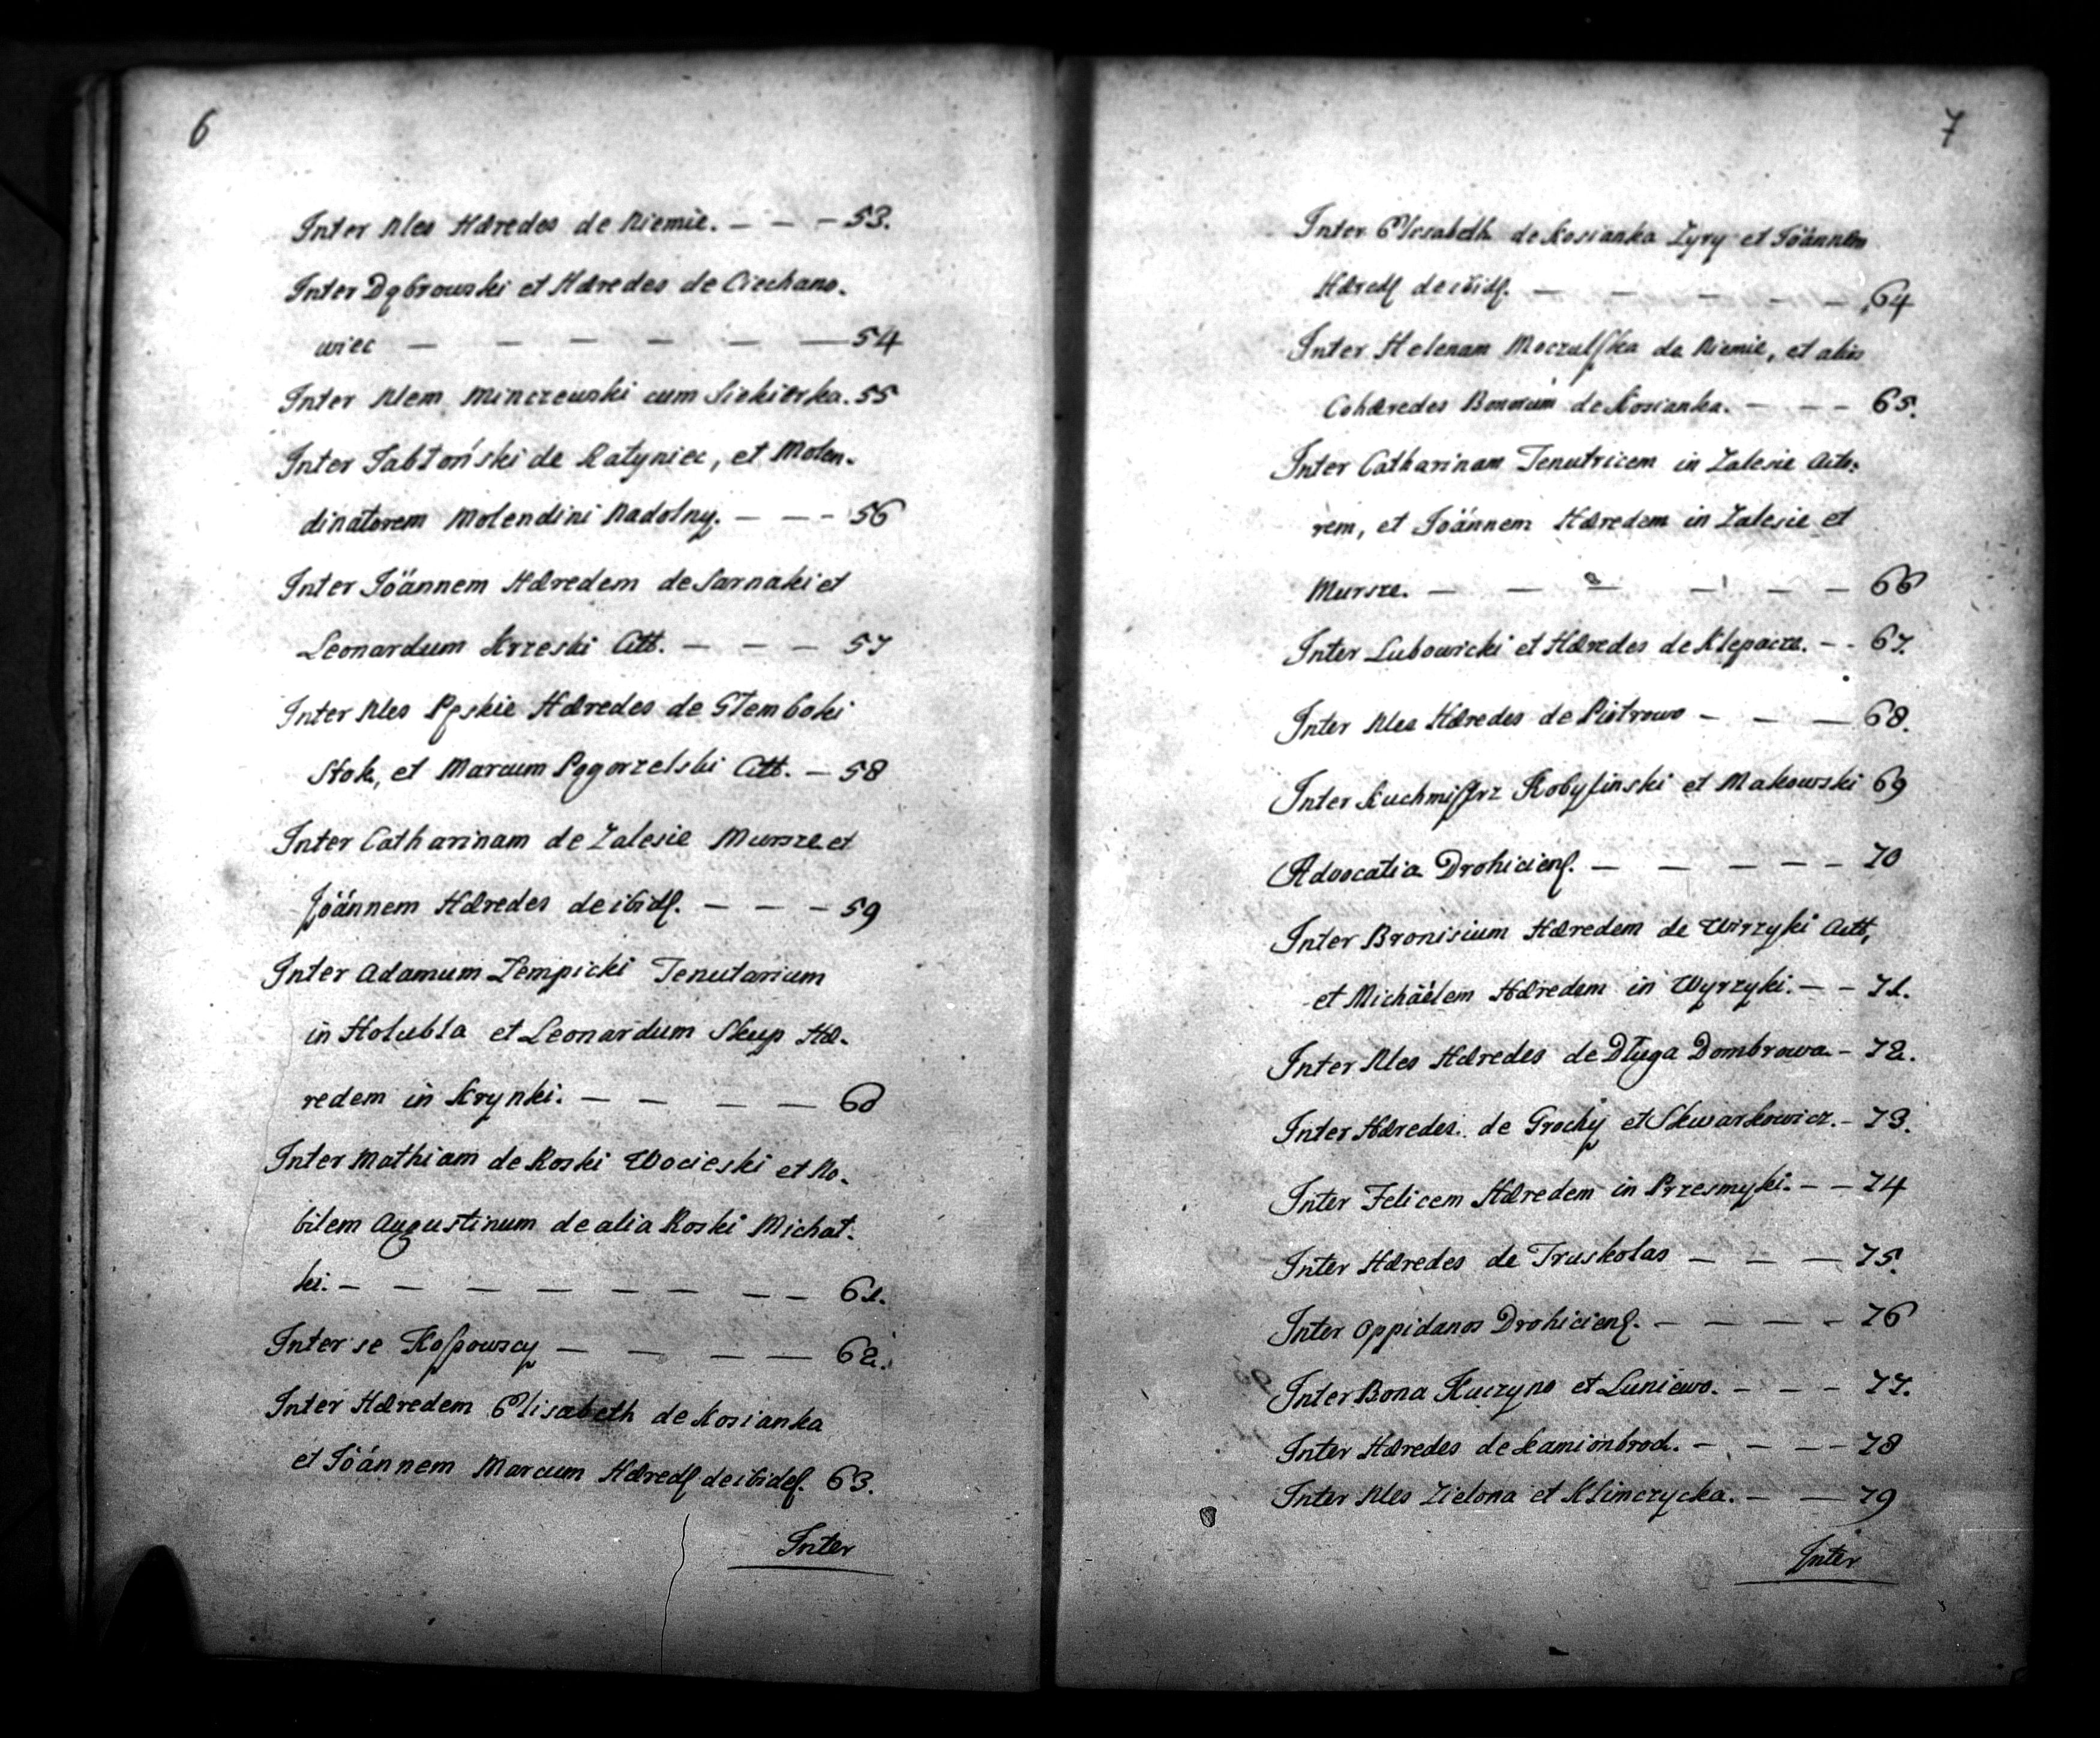 6
Inter Nles Hæredes de Niemie. — — — 53.
Inter Dąbrowski et Hæredes de Ciechano-
wiec — — — — — — 54
Inter Nlem Minczewski cum Siekierka. 55
Inter Jabłoński de Ratyniec, et Molen-
dinatorem Molendini Nadolny. — — — 56
Inter Joännem Hæredem de Sarnaki et
Leonardum Krzeski Ctt. — — — 57
Inter Nles Pęskie Hæredes de Glemboki
Stok, et Marcum Pogorzelski Ctt. — 58
Inter Catharinam de Zalesie Mursze et
Joännem Hæredes de ibidẽ. — — — 59
Inter Adamum Łempicki Tenutarium
in Hołubla et Leonardum Skup Hæ-
redem in Krynki. — — — — 60
Inter Mathiam de Roski Wocieski et No-
bilem Augustinum de alia Roski Michał-
ki. — — — — — — — — 61.
Inter se Kossowscy — — — — 62.
Inter Hæredem Elisabeth de Kosianka
et Joánnem Marcum Hæredẽ de ibidẽ. 63.
Inter
7
Inter Elisabeth de Kosianka Zyry et Joännem
Hæredẽ de ibidẽ. — — — — — 64
Inter Helenam Moczulska de Niemie, et alios
Cohæredes Bonorum de Kosianka. — — — 65.
Inter Catharinam Tenutricem in Zalesie Acto-
rem, et Joännem Hæredem in Zalesie et
Mursze. — — — — — — 66
Inter Lubowicki et Hæredes de Klepacze. — - 67.
Inter Nles Hæredes de Piotrowo — — — 68.
Inter Kuchmistrz Kobyliński et Makowski 69
Advocatia Drohicienẽ. — — — — — 70
Inter Bronisium Hæredem de Wirzyki Actt,
et Michäelem Hæredem in Wyrzyki. — — 71.
Inter Nles Hæredes de Długa Dombrowa. — 72.
Inter Hæredes. de Grochy et Skwarkowicz. — 73.
Inter Felicem Hæredem in Przesmyki. — — 74
Inter Hæredes de Truskolas — — — 75.
Inter Oppidanos Drohicienẽ. — — — — 76
Inter Bona Kuczyno et Luniewo. — — — 77.
Inter Hæredes de Kamionbrod. — — — — 78
Inter Nles Zielona et Klimczycka. — — 79
Inter